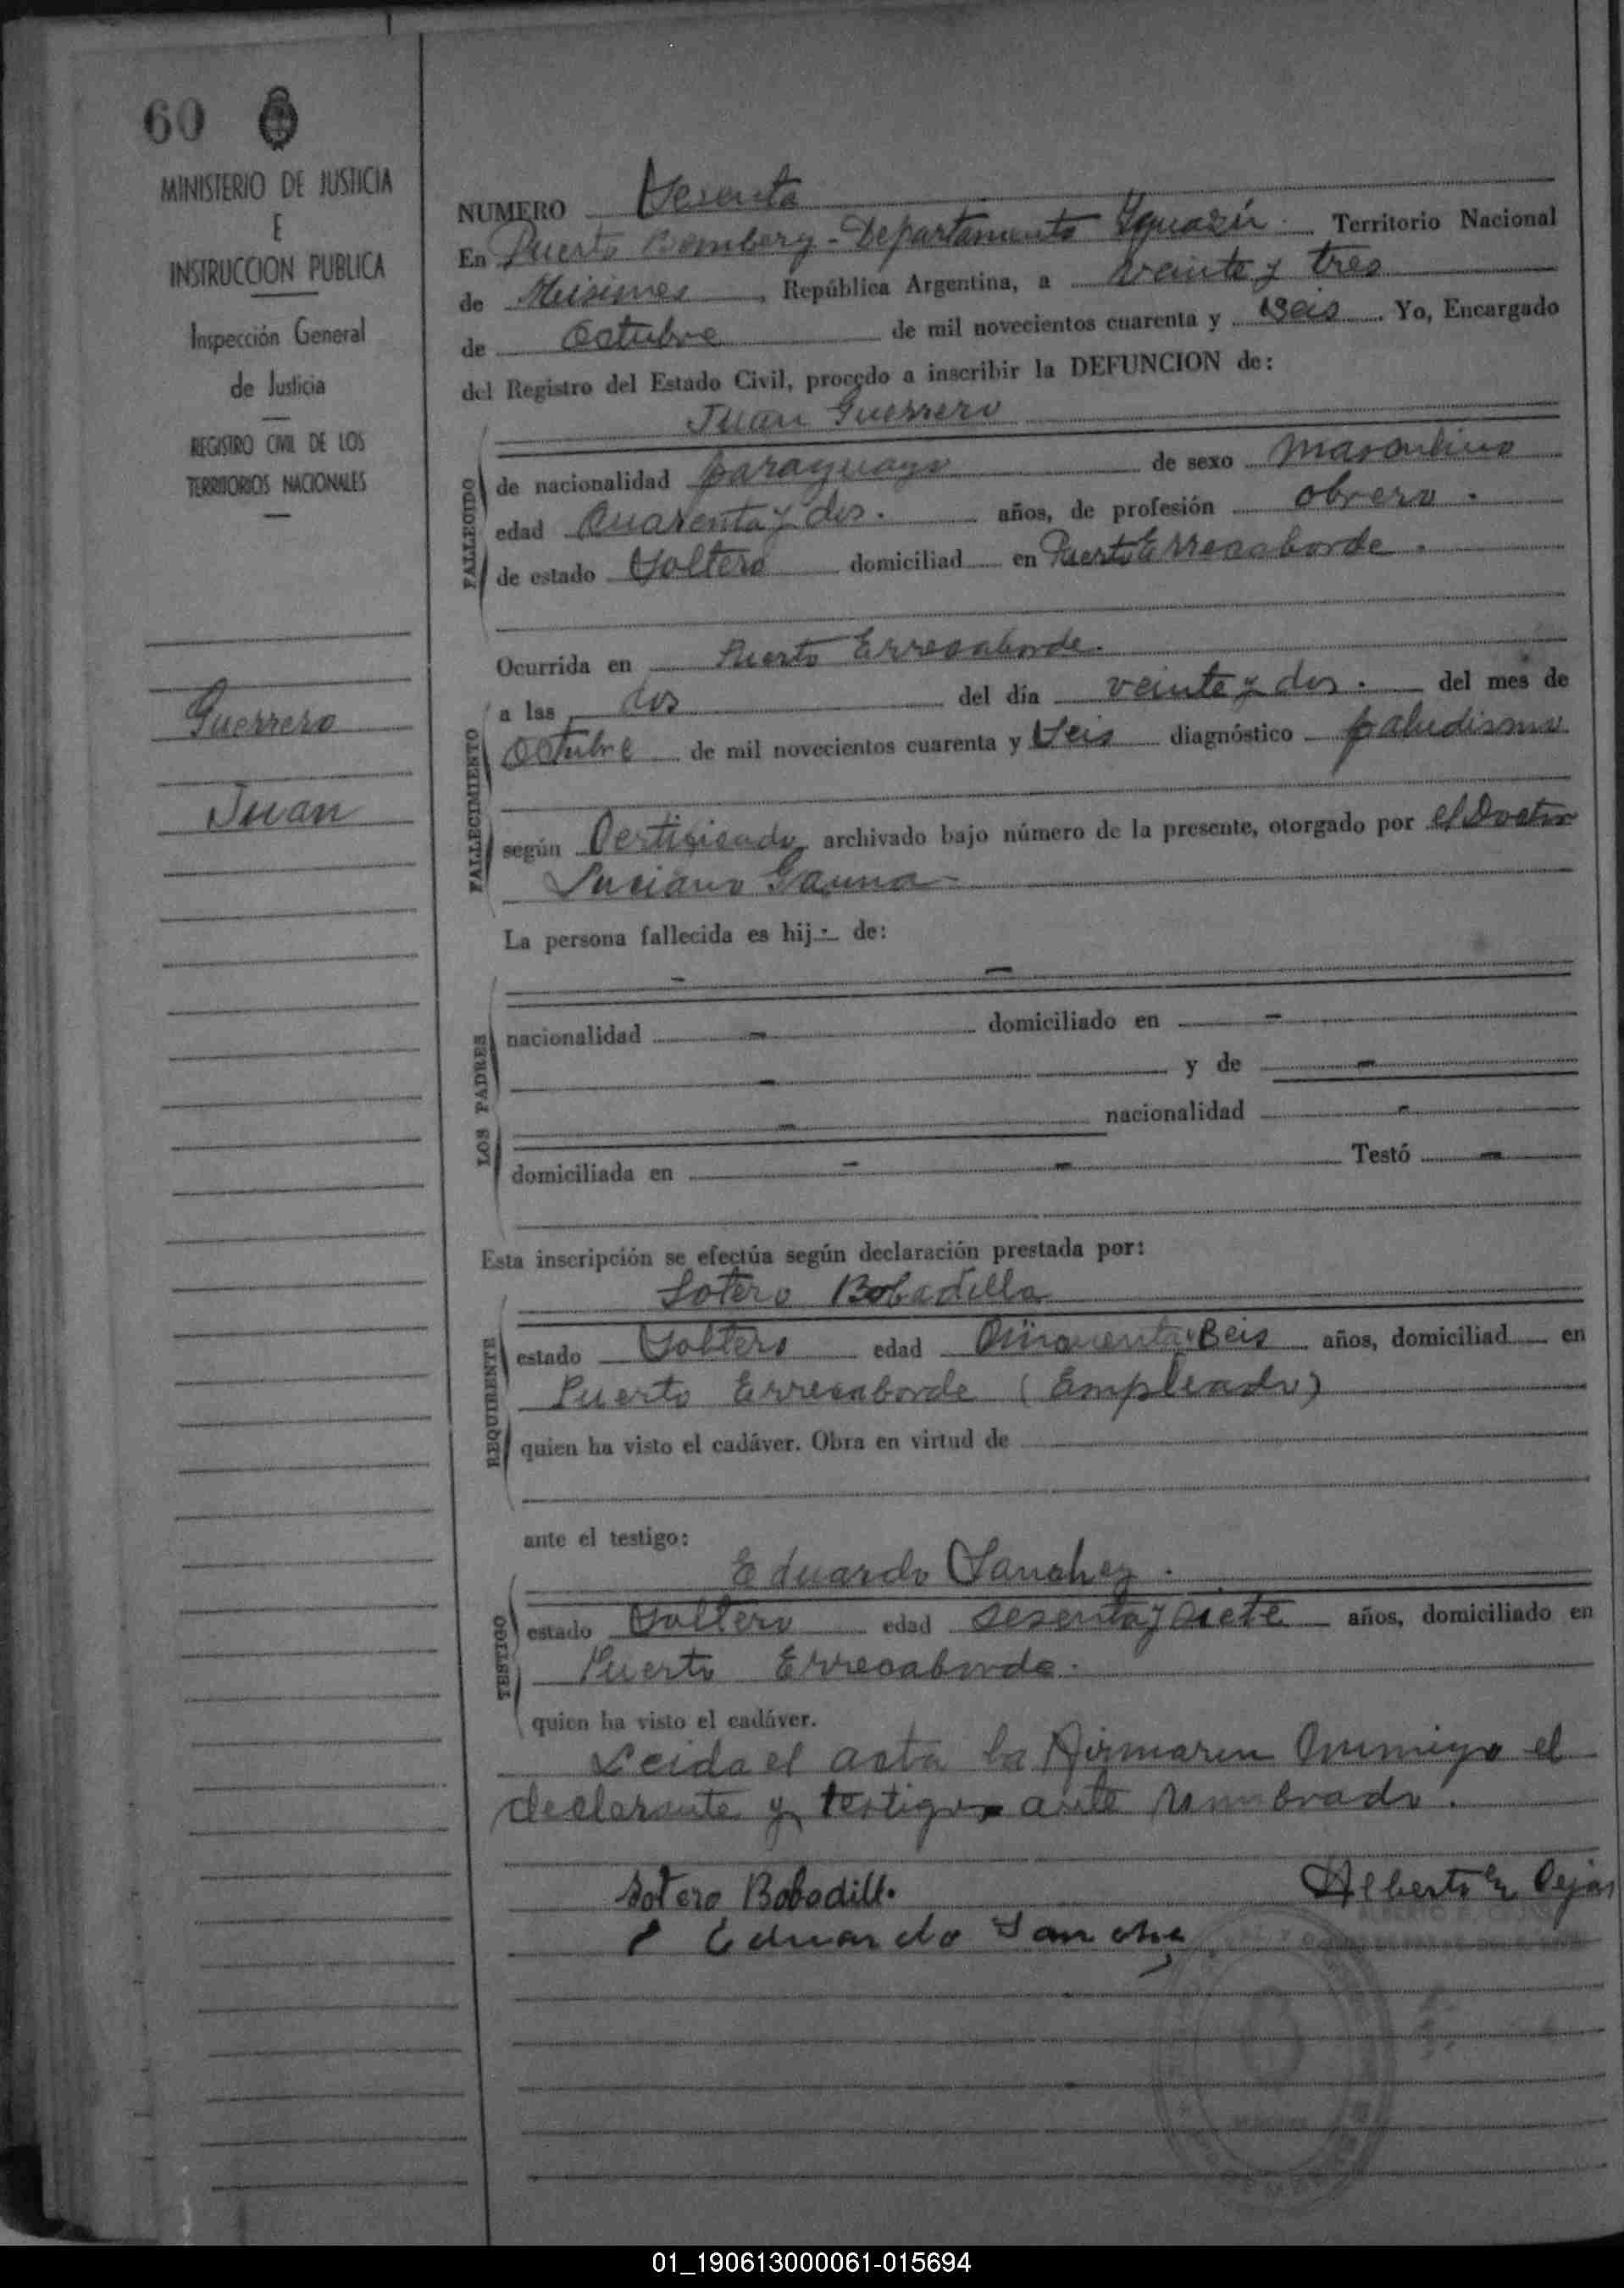 60
MINISTERIO DE JUSTICIA
E
INSTRUCCION PUBLICA
Inspección General
de Justicia
REGISTRO CIVIL DE LOS
TERRITORIOS NACIONALES
Guerrero
Juan
NUMERO Sesenta
En Puerto Bemberg - Departamento Iguazú. Territorio Nacional
de Misiones, República Argentina, a veinte y tres
de Octubre de mil novecientos cuarenta y Seis. Yo, Encargado
del Registro del Estado Civil, procedo a inscribir la DEFUNCION de:
Juan Guerrero
FALLECIDO
de nacionalidad paraguayo de sexo masculino
edad Cuarenta y dos. años, de profesión obrero.
de estado Soltero domiciliad en Puerto Errecaborde.
FALLECIMIENTO
Ocurrida en Puerto Errecaborde.
a las dos del día veinte y dos. del mes de
Octubre de mil novecientos cuarenta y Seis diagnóstico paludismo
según Certificado archivado bajo número de la presente, otorgado por el Doctor
Luciano Gauna
La persona fallecida es hij - de:
LOS PADRES
nacionalidad - domiciliado en -
- y de -
- nacionalidad -
domiciliada en - - Testó -
Esta inscripción se efectúa según declaración prestada por:
Sotero Bobadilla
REQUIRENTE
estado Soltero edad Cincuenta y Seis años, domiciliad en
Puerto Errecaborde (Empleado)
quien ha visto el cadáver. Obra en virtud de
ante el testigo:
Eduardo Sanchez.
TESTIGO
estado Soltero edad sesenta y siete años, domiciliado en
Puerto Errecaborde.
quien ha visto el cadáver.
Leida el acta la firmaren conmigo el
declarante y testigo ante nombrado.
Sotero Bobadill.
Alberto
Eduardo Sanchez
01_190613000061-015694